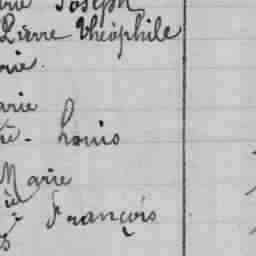 Joseph
Pierre Théophile
arie
Louis
Marie
François